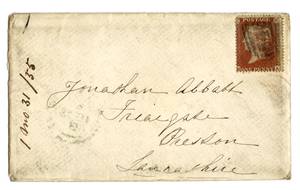 POSTAGE
ONE PENNY
1 mo 31 / 55
Jonathan Abbatt
Friargate
Preston
Lancashire